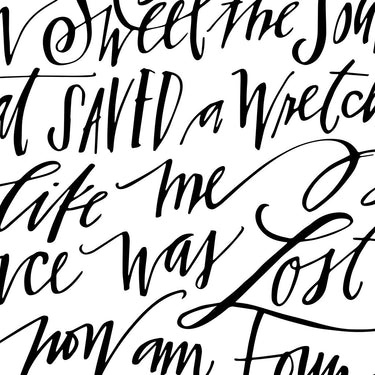 Sweet the Sou
at SAVED a Wretch
like me
nce was Lost
now am Foun